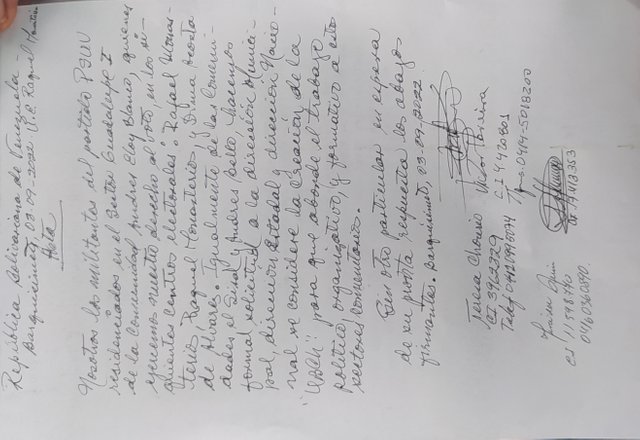 República Bolivariana de Venezuela
Barquisimeto, 03.09.2022 U.E Raquel
Acta
Nosotros los militantes del partido PSUV
residenciados en el Sector Guadalupe I
de la comunidad Andres Eloy Blanco, quienes
ejercemos nuestro derecho al voto, en los si-
guientes centros electorales: Rafael Monas-
terios, Raquel Monasterios y Dima Acosta
de Alvarez. Igualmente de las Comuni-
dades el Sisal y Andres Bello hacemos
formal solicitud a la dirección Munici-
pal, dirección Estadal y dirección Nacio-
nal se considere la Creación de la
"Ubch" para que aborde el trabajo
político, organizativo y formativo a esto
sectores comunitarios.
Sin otro particular, en espera
de su pronta respuesta los abajos
firmantes. Barquisimeto, 03.09.2022
Teresa
CI 3922329
Telef
11598440